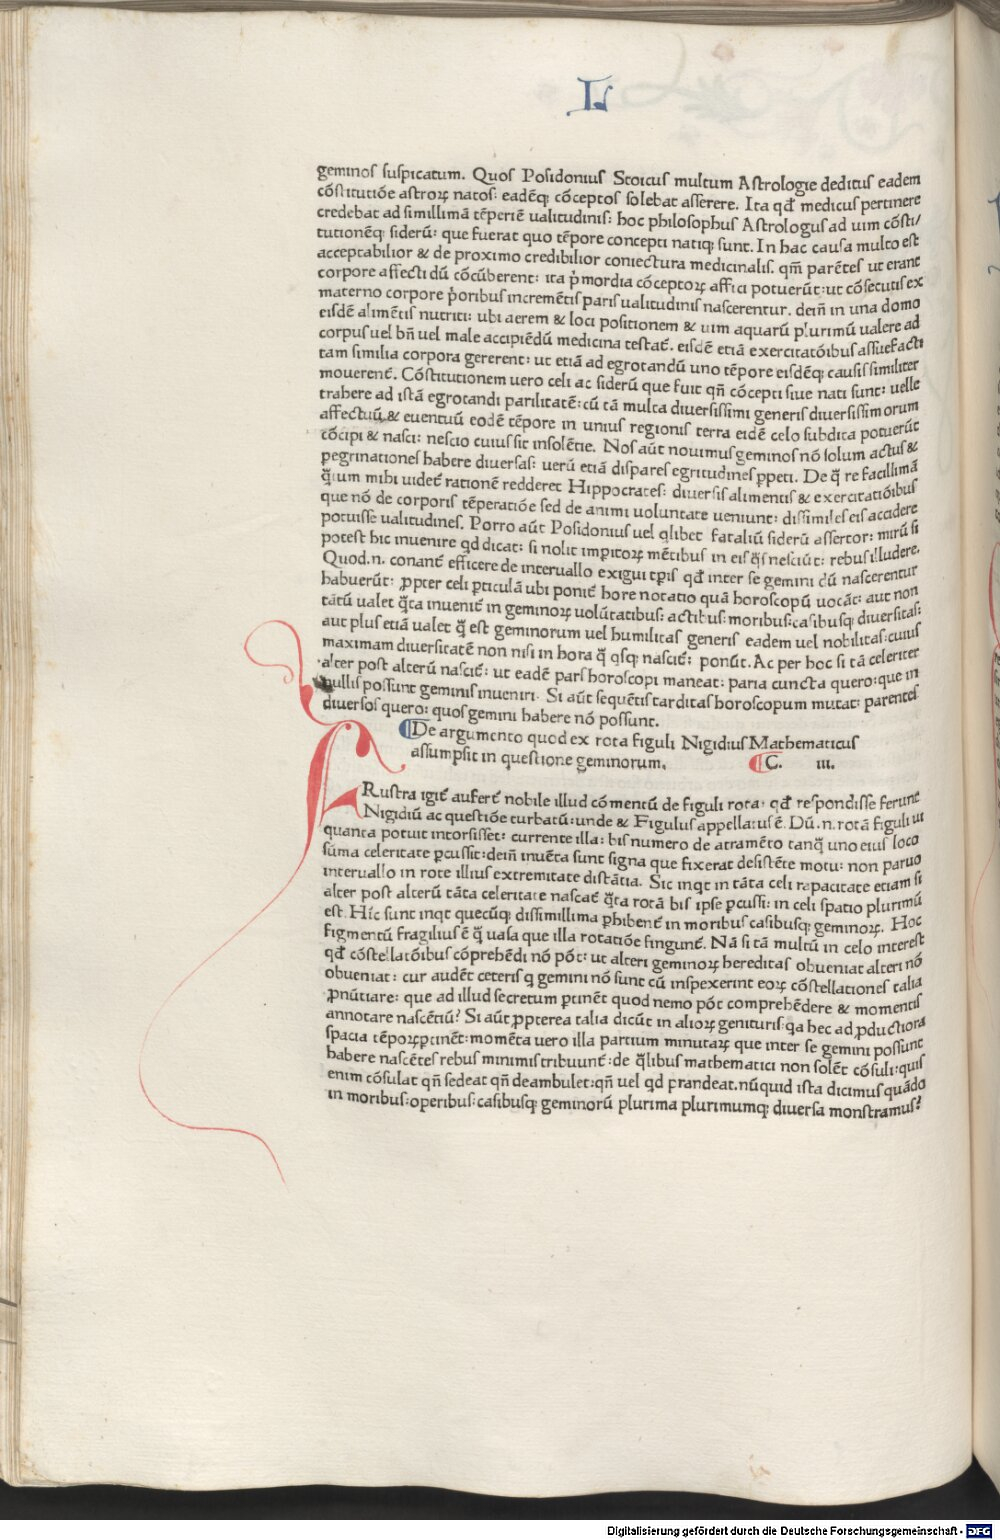 L
geminos suspicatum. Quos Posidonius Stoicus multum Astrologie deditus eadem
cōstitutiōe astroꝝ natos: eadēqꝫ cōceptos solebat asserere. Ita qd̄ medicus pertinere
credebat ad simillimā tēperiē ualitudinis: hoc philosophus Astrologus ad uim cōsti/
tutionēqꝫ siderū: que fuerat quo tēpore concepti natiqꝫ sunt. In hac causa multo est
acceptabilior & de proximo credibilior coniectura medicinalis. qm̄ parētes ut erant
corpore affecti dū cōcūberent: ita p̄mordia cōceptoꝝ affici potuerūt: ut cōsecutis ex
materno corpore p̄oribus incremētis paris ualitudinis nascerentur. dein̄ in una domo
eisdē alimētis nutriti: ubi aerem & loci positionem & uim aquarū plurimū ualere ad
corpus uel bn̄ uel male accipiēdū medicina testat̄. eisdē etiā exercitatōibus assuefacti
tam similia corpora gererent: ut etiā ad egrotandū uno tēpore eisdēqꝫ causis similiter
mouerent̄. Cōstitutionem uero celi ac siderū que fuit qn̄ cōcepti siue nati sunt: uelle
trahere ad istā egrotandi parilitatē: cū tā multa diuersissimi generis diuersissimorum
affectuū & euentuū eodē tēpore in unius regionis terra eidē celo subdita potuerūt
cōcipi & nasci: nescio cuius sit insolētie. Nos aūt nouimus geminos nō solum actus &
pegrinationes habere diuersas: uerū etiā dispares egritudines ꝑpeti. De q̄ re facillimā
q̄tum mihi uidet̄ rationē redderet Hippocrates: diuersis alimentis & exercitatiōibus
que nō de corporis tēperatiōe sed de animi uoluntate ueniunt: dissimiles eis accidere
potuisse ualitudines. Porro aūt Posidonius uel qlibet fataliū siderū assertor: mirū si
potest hic inuenire qd dicat: si nolit imꝑitoꝝ mētibus in eis q̄s nesciūt: rebus illudere.
Quod.n. conant̄ efficere de interuallo exigui tꝑis qd̄ inter se gemini dū nascerentur
habuerūt: ꝓpter celi ꝑticulā ubi ponit̄ hore notatio quā horoscopū uocāt: aut non
tātū ualet q̄ta inuenit̄ in geminoꝝ uolūtatibus: actibus: moribus: casibusqꝫ diuersitas:
aut plus etiā ualet q̄ est geminorum uel humilitas generis eadem uel nobilitas: cuius
maximam diuersitatē non nisi in hora q̄ qsqꝫ nascit̄: ponūt. Ac per hoc si tā celeriter
alter post alterū nascit̄: ut eadē pars horoscopi maneat: paria cuncta quero: que in
nullis possunt geminis inueniri. Si aūt sequētis tarditas horoscopum mutat: parentes
diuersos quero: quos gemini habere nō possunt.
De argumento quod ex rota figuli Nigidius Mathematicus
assumpsit in questione geminorum. C. iii.
FRustra igit̄ aufert̄ nobile illud cōmentū de figuli rota: qd̄ respondisse ferunt
Nigidiū ac questiōe turbatū: unde & Figulus appellatus ē. Dū.n. rotā figuli ui
quanta potuit intorsisset: currente illa: bis numero de atramēto tanq̄ uno eius loco
sūma celeritate ꝑcussit: dein̄ inuēta sunt signa que fixerat desistēte motu: non paruo
interuallo in rote illius extremitate distātia. Sic inqt in tāta celi rapacitate etiam si
alter post alterū tāta celeritate nascat̄ q̄ta rotā bis ipse ꝑcussi: in celi spatio plurimū
est. Hic sunt inqt quecūqꝫ dissimillima ꝑhibent̄ in moribus casibusqꝫ geminoꝝ. Hoc
figmentū fragilius ē q̄ uasa que illa rotatiōe fingunt̄. Nā si tā multū in celo interest
qd̄ cōstellatōibus cōprehēdi nō pōt: ut alteri geminoꝝ hereditas obueniat alteri nō
obueniat: cur audēt ceteris q gemini nō sunt cū inspexerint eoꝝ cōstellationes talia
ꝓnūtiare: que ad illud secretum ꝑtinēt quod nemo pōt comprehēdere & momentis
annotare nascētiū? Si aūt ꝓpterea talia dicūt in alioꝝ genituris: qa hec ad ꝓductiora
spacia tēpoꝝ ꝑtinēt: momēta uero illa partium minutaꝝ que inter se gemini possunt
habere nascētes rebus minimis tribuunt̄: de q̄libus mathematici non solēt cōsuli: quis
enim cōsulat qn̄ sedeat qn̄ deambulet: qn̄ uel qd prandeat. nūquid ista dicimus quādo
in moribus: operibus: casibusqꝫ geminorū plurima plurimumqꝫ diuersa monstramus?
Digitalisierung gefördert durch die Deutsche Forschungsgemeinschaft - DFG